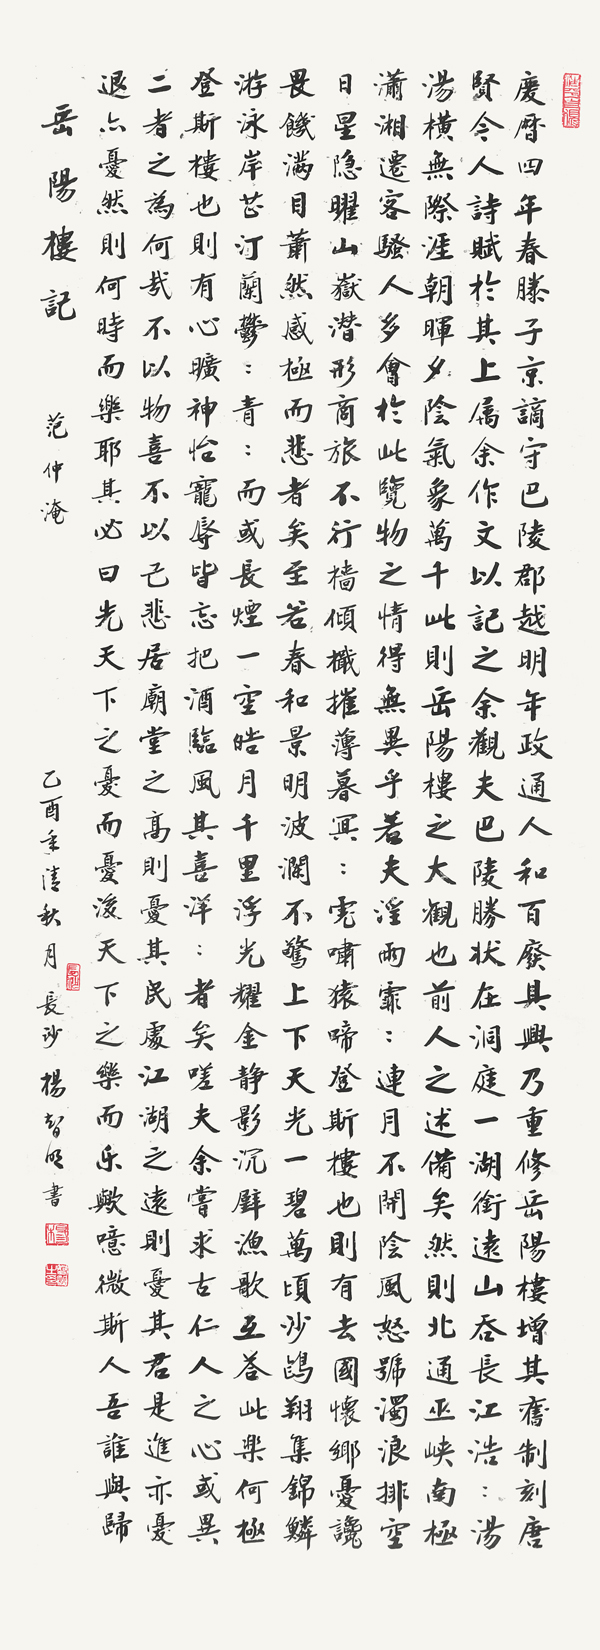 慶曆四年春滕子京謫守巴陵郡越明年政通人和百廢具興乃重修岳陽樓增其舊制刻唐
賢今人詩賦於其上属余作文以記之余觀夫巴陵勝狀在洞庭一湖銜遠山吞長江浩〻湯
湯橫無際涯朝暉夕陰氣象萬千此則岳陽樓之大觀也前人之述備矣然則北通巫峽南極
瀟湘遷客騷人多會於此覽物之情得無異乎若夫淫雨霏〻連月不開陰風怒號濁浪排空
日星隐曜山嶽潛形商旅不行檣傾檝摧薄暮冥〻虎嘯猿啼登斯樓也則有去國懷鄉憂讒
畏饑滿目蕭然感極而悲者矣至若春和景明波瀾不驚上下天光一碧萬頃沙鷗翔集錦鱗
游泳岸芷汀蘭鬱〻青〻而或長煙一空皓月千里浮光耀金静影沉璧漁歌互荅此樂何極
登斯樓也則有心曠神怡寵辱皆忘把酒臨風其喜洋〻者矣嗟夫余嘗求古仁人之心或異
二者之為何哉不以物喜不以己悲居廟堂之高則憂其民處江湖之遠則憂其君是進亦憂
退亦憂然則何時而樂耶其必曰先天下之憂而憂後天下之樂而乐歟噫微斯人吾誰與歸
岳陽樓記
范仲淹
乙酉年清秋月長沙楊智明書